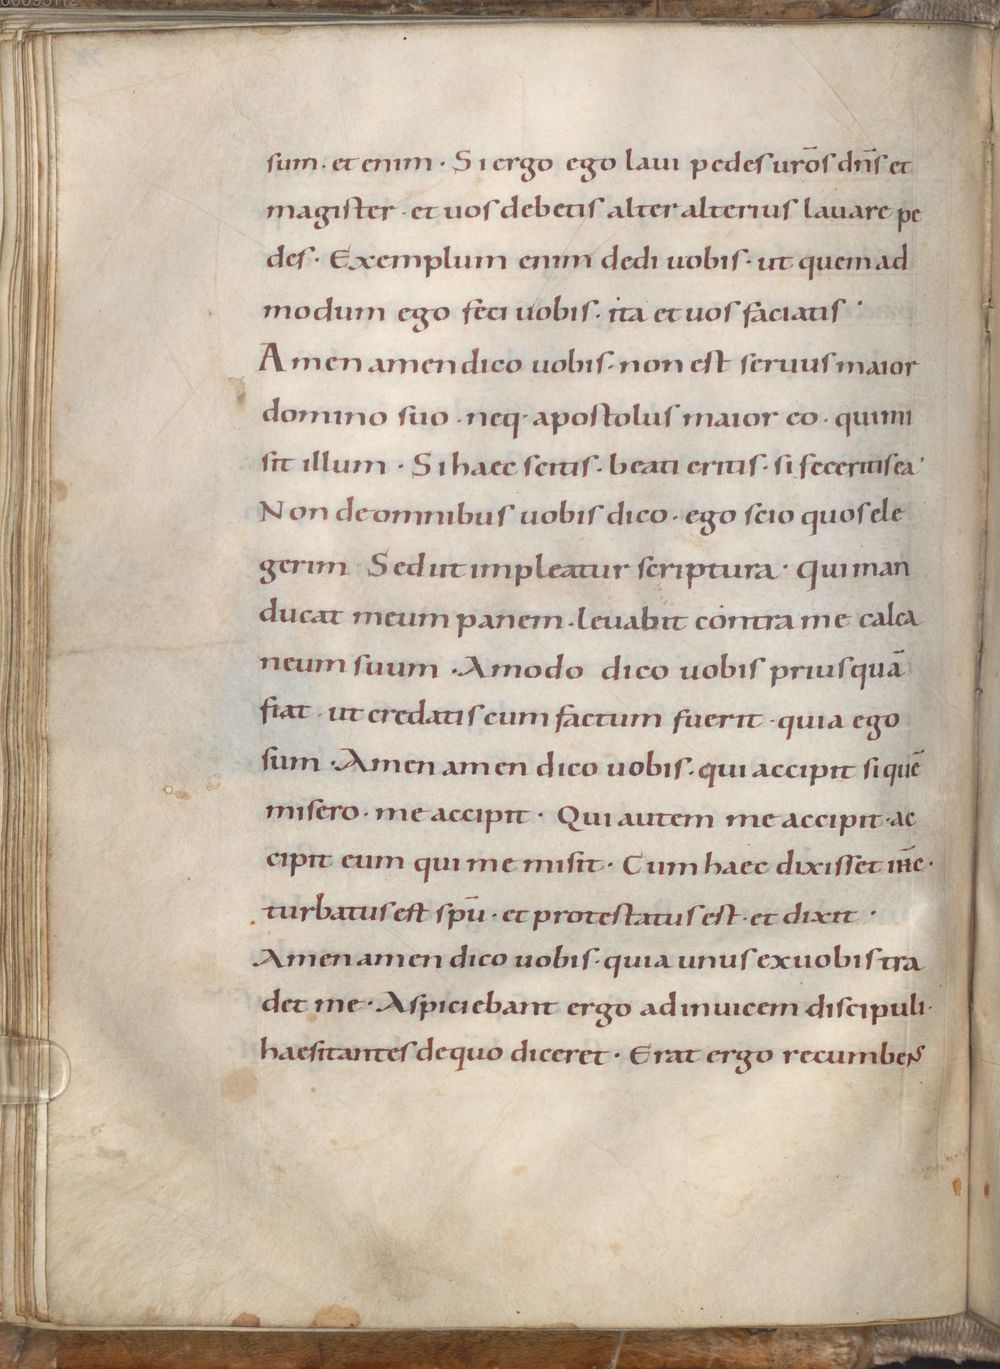 sum · et enim · Si ergo ego laui pedes urōs dn̄s et
magister · et uos debetis alter alterius lauare pe
des · Exemplum enim dedi uobis · ut quem ad
modum ego feci uobis · ita et uos faciatis ·
Amen amen dico uobis · non est seruus maior
domino suo · neq· apostolus maior eo · qui mi
sit illum · Si haec scitis · beati eritis · si feceritis ea ·
Non de omnibus uobis dico · ego scio quos ele
gerim Sed ut impleatur scriptura · Qui man
ducat meum panem · leuabit contra me calca
neum suum · Amodo dico uobis priusquā
fiat · ut credatis cum factum fuerit · quia ego
sum · Amen amen dico uobis · qui accipit si quē
misero · me accipit · Qui autem me accipit · ac
cipit eum qui me misit · Cum haec dixisset ih̄c ·
turbatus est spū · et protestatus est · et dixit ·
Amen amen dico uobis · quia unus ex uobis tra
det me · Aspiciebant ergo ad inuicem discipuli ·
haesitantes de quo diceret · Erat ergo recumbens